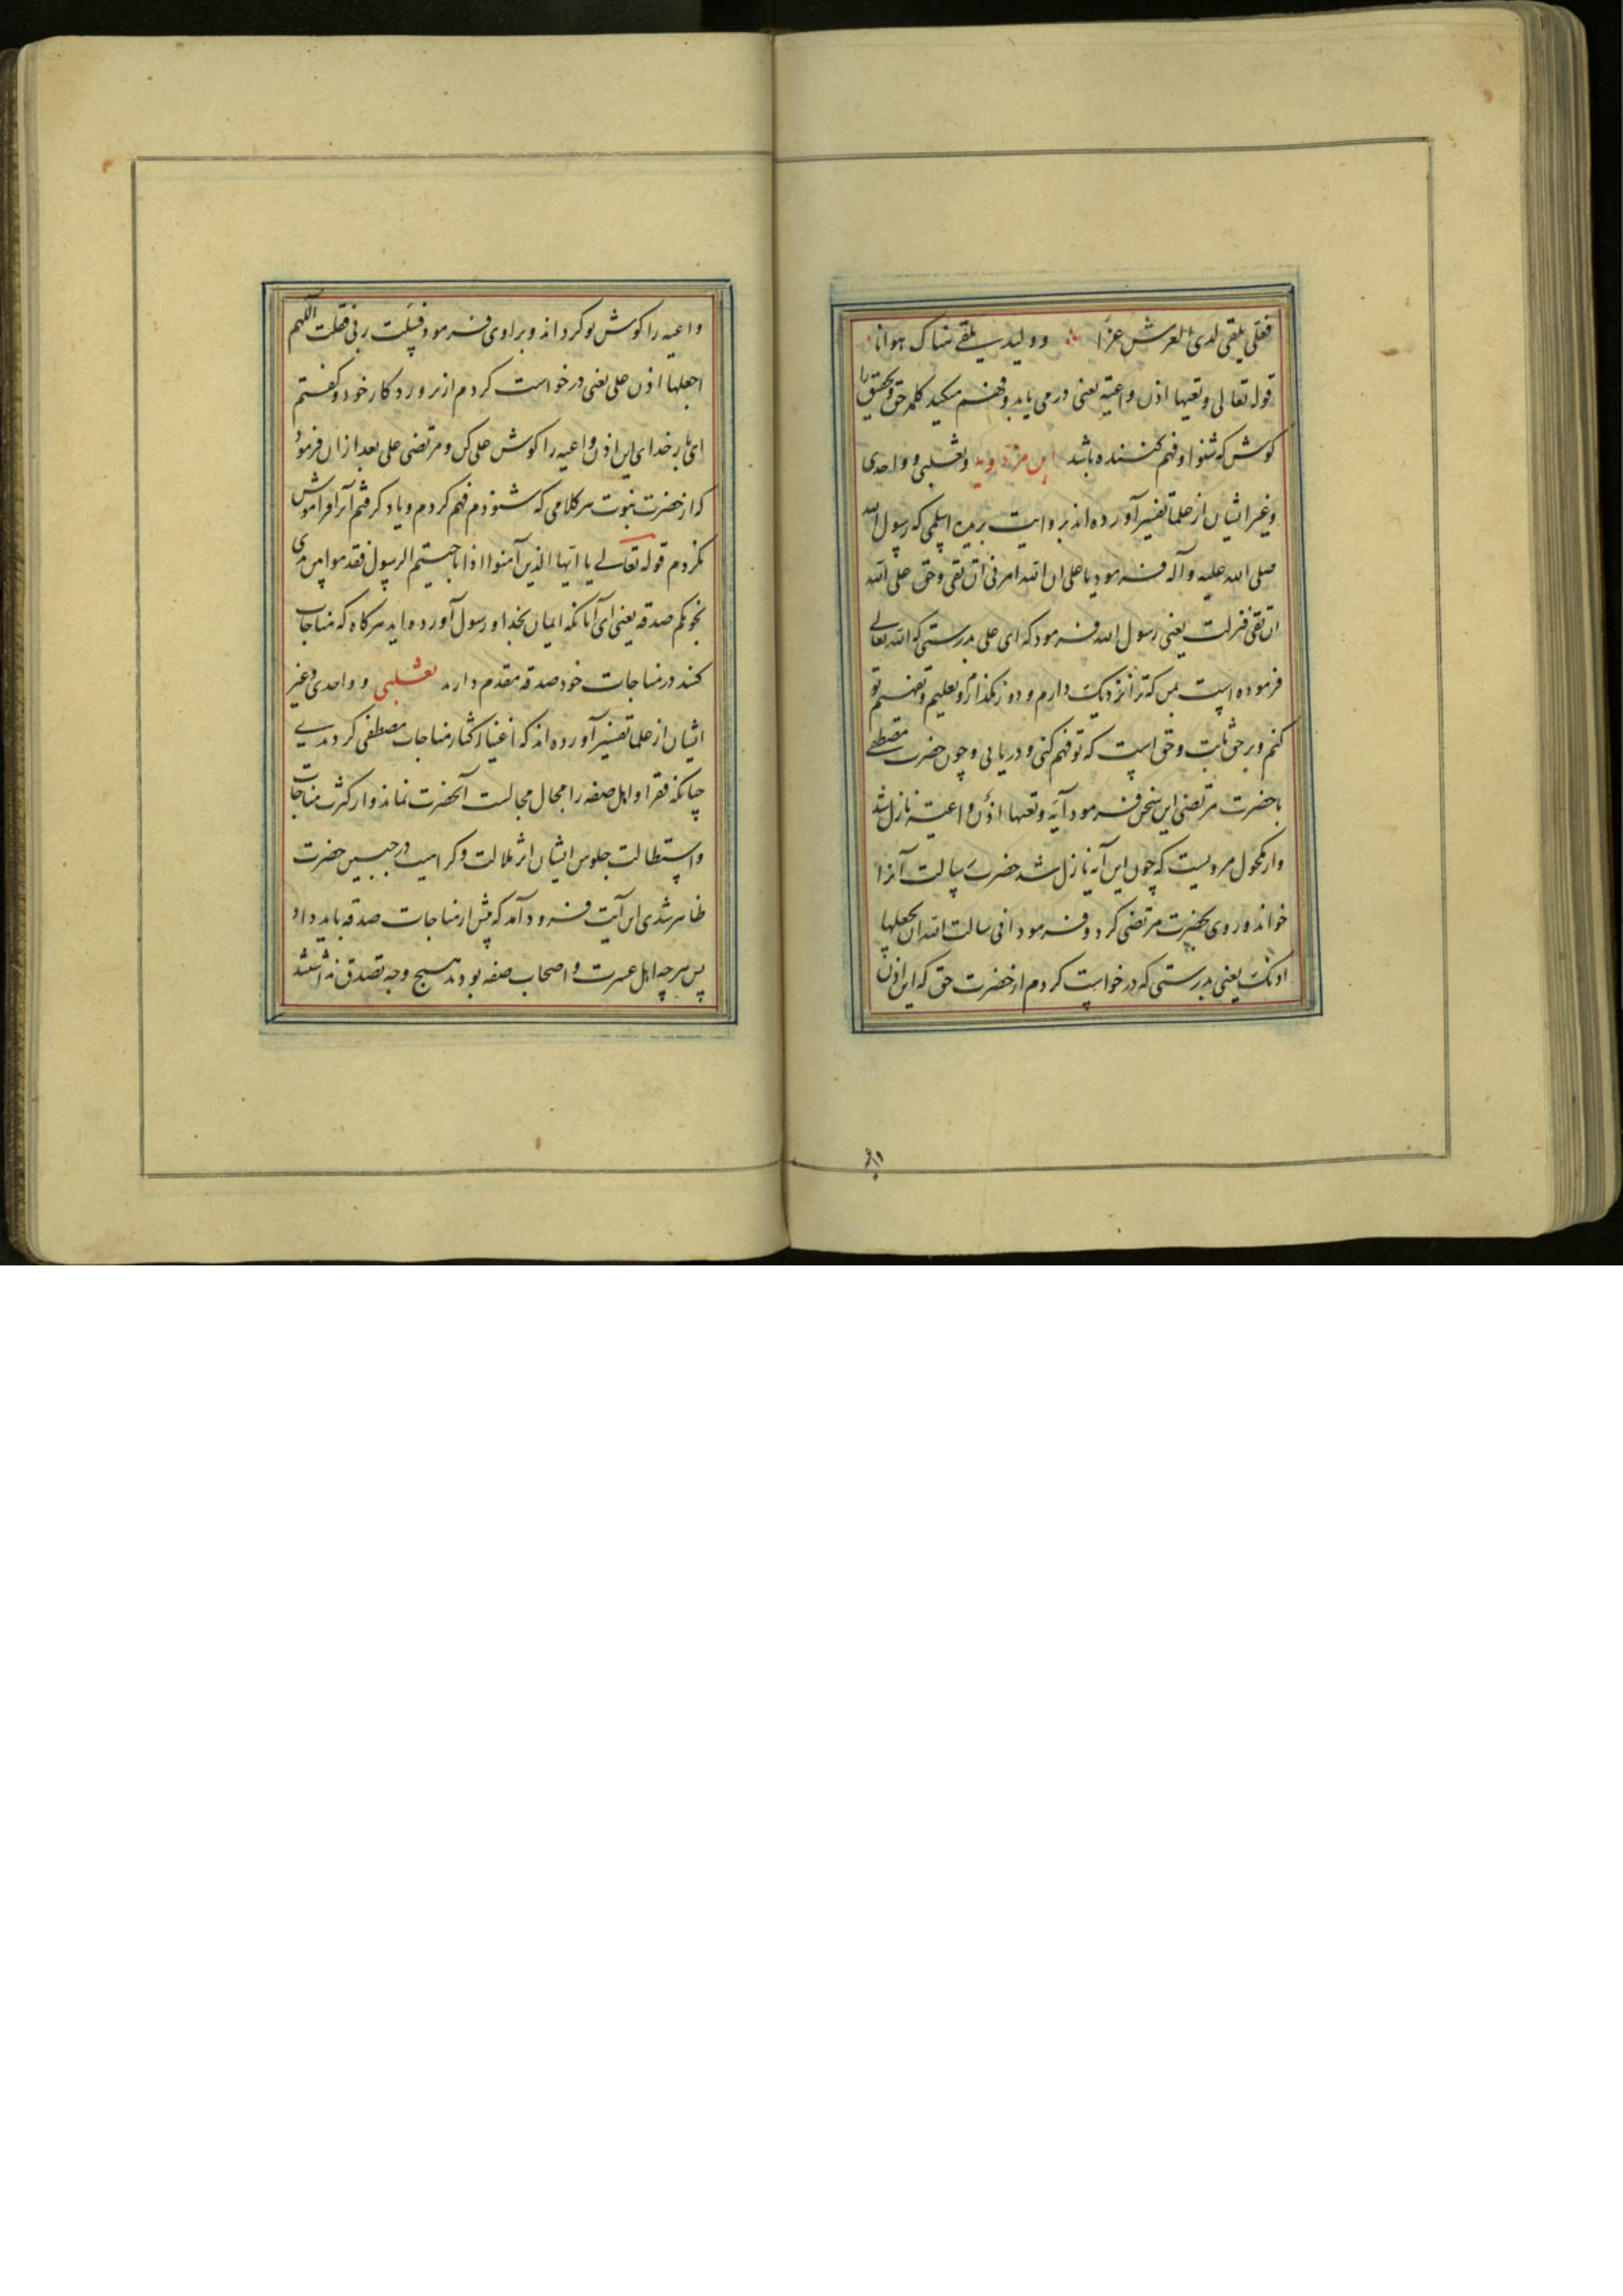 فعلی یلقی لدی العرش عزا ∴ وولید یلقی هناک هوانا
قوله تعالی وتعیها اذن واعیة یعنی در می یابد وفهم میکند کلمه حق وتحقیق را
کوش که شنوا وفهم کننده باشد ابن مردویه وثعلبی و واحدی
وغیر ایشان از علما تفسیر آورده اند بروایت بریده اسلمی که رسول الله
صلی الله علیه وآله فرمود یا علی ان الله امرنی ان
یعنی رسول الله فرمود که ای علی بدرستی که الله تعالی
فرموده است بمن که ترا نزدیک دارم و دور نکذارم وتعلیم وتفهیم تو
کنم وبر حق ثابت وحق است که تو فهم کنی و دریابی وچون حضرت مصطفی
با حضرت مرتضی این سخن فرمود آیه وتعیها اذن واعیة نازل شد
واز مکحول مرویست که چون این آیه نازل شد حضرت رسالت آنرا
خواند و روی بحضرت مرتضی کرد وفرمود انی سالت الله ان یجعلها
اذنک یعنی بدرستی که درخواست کردم از حضرت حق که این اذن
واعیه
واعیه را کوش تو کرداند وبراوی فرمود فسئلت ربی فقلت اللهم
اجعلها اذن علی یعنی درخواست کردم از پروردکار خود وکفتم
ای بار خدای این اذن واعیه را کوش علی کن ومرتضی علی بعد ازان فرمود
که از حضرت نبوت هر کلامی که شنودم فهم کردم ویاد کرفتم آنرا فراموش
نکردم قوله تعالی یا ایها الذین آمنوا اذا ناجیتم الرسول فقدموا بین یدی
نجویکم صدقه یعنی ای آنانکه ایمان بخدا ورسول آورده اید هرکاه که مناجات
کنند در مناجات خود صدقه مقدم دارند ثعلبی و واحدی وغیر
ایشان از علما تفسیر آورده اند که اغنیا اکثار مناجات مصطفی کردندی
چنانکه فقرا واهل صفه را مجال مجالست آنحضرت نماند واز کثرت مناجات
واستطالت جلوس ایشان اثر ملالت وکراهیت در جبین حضرت
ظاهر شدی این آیت فرود آمد که پیش از مناجات صدقه باید داد
پس هرچه اهل عسرت واصحاب صفه بودند هیچ وجه تصدق نداشتند